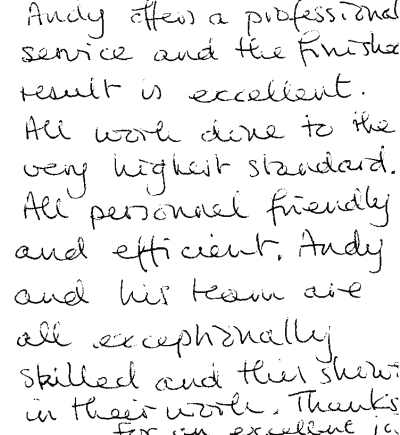 Andy offers a professional
service and the finishe
result is excellent.
All work done to the
very highest standard.
All personnel friendly
and efficient. Andy
and his team are
all exceptionally
skilled and this shows
in their work. Thanks
for an excellent jo